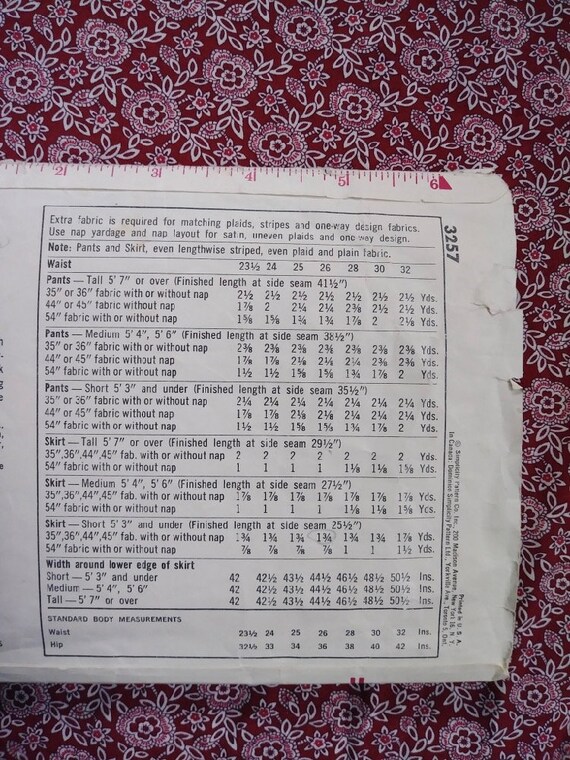 2 3 4 5 6
Extra fabric is required for matching plaids, stripes and one-way design fabrics.
Use nap yardage and nap layout for satin, uneven plaids and one way design.
Note: Pants and Skirt, even lengthwise striped, even plaid and plain fabric.
Waist 23½ 24 25 26 28 30 32
Pants — Tall 5' 7" or over (Finished length at side seam 41½")
35" or 36" fabric with or without nap 2½ 2½ 2½ 2½ 2½ 2½ 2½ Yds.
44" or 45" fabric with or without nap 1⅞ 2 2¼ 2¼ 2⅜ 2½ 2½ Yds.
54" fabric with or without nap 1⅝ 1⅝ 1¾ 1¾ 1⅞ 2 2⅛ Yds.
Pants — Medium 5' 4", 5' 6" (Finished length at side seam 38½")
35" or 36" fabric with or without nap 2⅜ 2⅜ 2⅜ 2⅜ 2⅜ 2⅜ 2⅜ Yds.
44" or 45" fabric with or without nap 1⅞ 1⅞ 2⅛ 2¼ 2¼ 2⅜ 2⅜ Yds.
54" fabric with or without nap 1½ 1½ 1⅝ 1¾ 1¾ 1⅞ 2 Yds.
Pants — Short 5' 3" and under (Finished length at side seam 35½")
35" or 36" fabric with or without nap 2¼ 2¼ 2¼ 2¼ 2¼ 2¼ 2¼ Yds.
44" or 45" fabric with or without nap 1⅞ 1⅞ 2⅛ 2⅛ 2¼ 2¼ 2¼ Yds.
54" fabric with or without nap 1½ 1½ 1⅝ 1⅝ 1¾ 1⅞ 2 Yds.
Skirt — Tall 5' 7" or over (Finished length at side seam 29½")
35",36",44",45" fab. with or without nap 2 2 2 2 2 2 2 Yds.
54" fabric with or without nap 1 1 1 1 1⅛ 1⅛ 1⅝ Yds.
Skirt — Medium 5' 4", 5' 6" (Finished length at side seam 27½")
35",36",44",45" fab. with or without nap 1⅞ 1⅞ 1⅞ 1⅞ 1⅞ 1⅞ 1⅞ Yds.
54" fabric with or without nap 1 1 1 1 1⅛ 1⅛ 1⅝ Yds.
Skirt — Short 5' 3" and under (Finished length at side seam 25½")
35",36",44",45" fab. with or without nap 1¾ 1¾ 1¾ 1¾ 1¾ 1¾ 1⅞ Yds.
54" fabric with or without nap ⅞ ⅞ ⅞ ⅞ 1 1 1½ Yds.
Width around lower edge of skirt
Short — 5' 3" and under 42 42½ 43½ 44½ 46½ 48½ 50½ Ins.
Medium — 5' 4", 5' 6" 42 42½ 43½ 44½ 46½ 48½ 50½ Ins.
Tall — 5' 7" or over 42 42½ 43½ 44½ 46½ 48½ 50½ Ins.
STANDARD BODY MEASUREMENTS
Waist 23½ 24 25 26 28 30 32 Ins.
Hip 32½ 33 34 36 38 40 42 Ins.
3257
© Simplicity Pattern Co. Inc., 200 Madison Avenue, New York 16, N. Y.
In Canada: Dominion Simplicity Patterns Ltd., Toronto 5, Ont.
Printed in U. S. A.